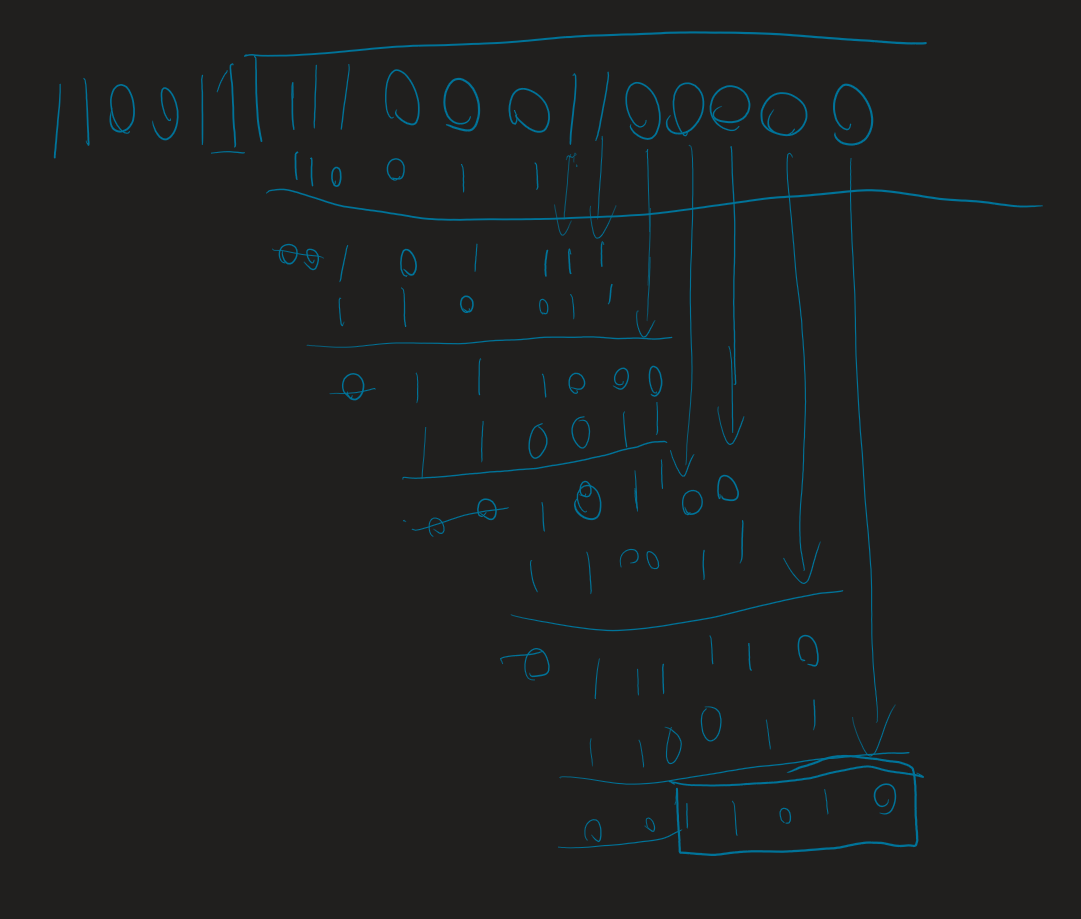 110011 1110001100000
110011
00101111
110011
0111000
110011
00101100
110011
0111110
110011
0011010